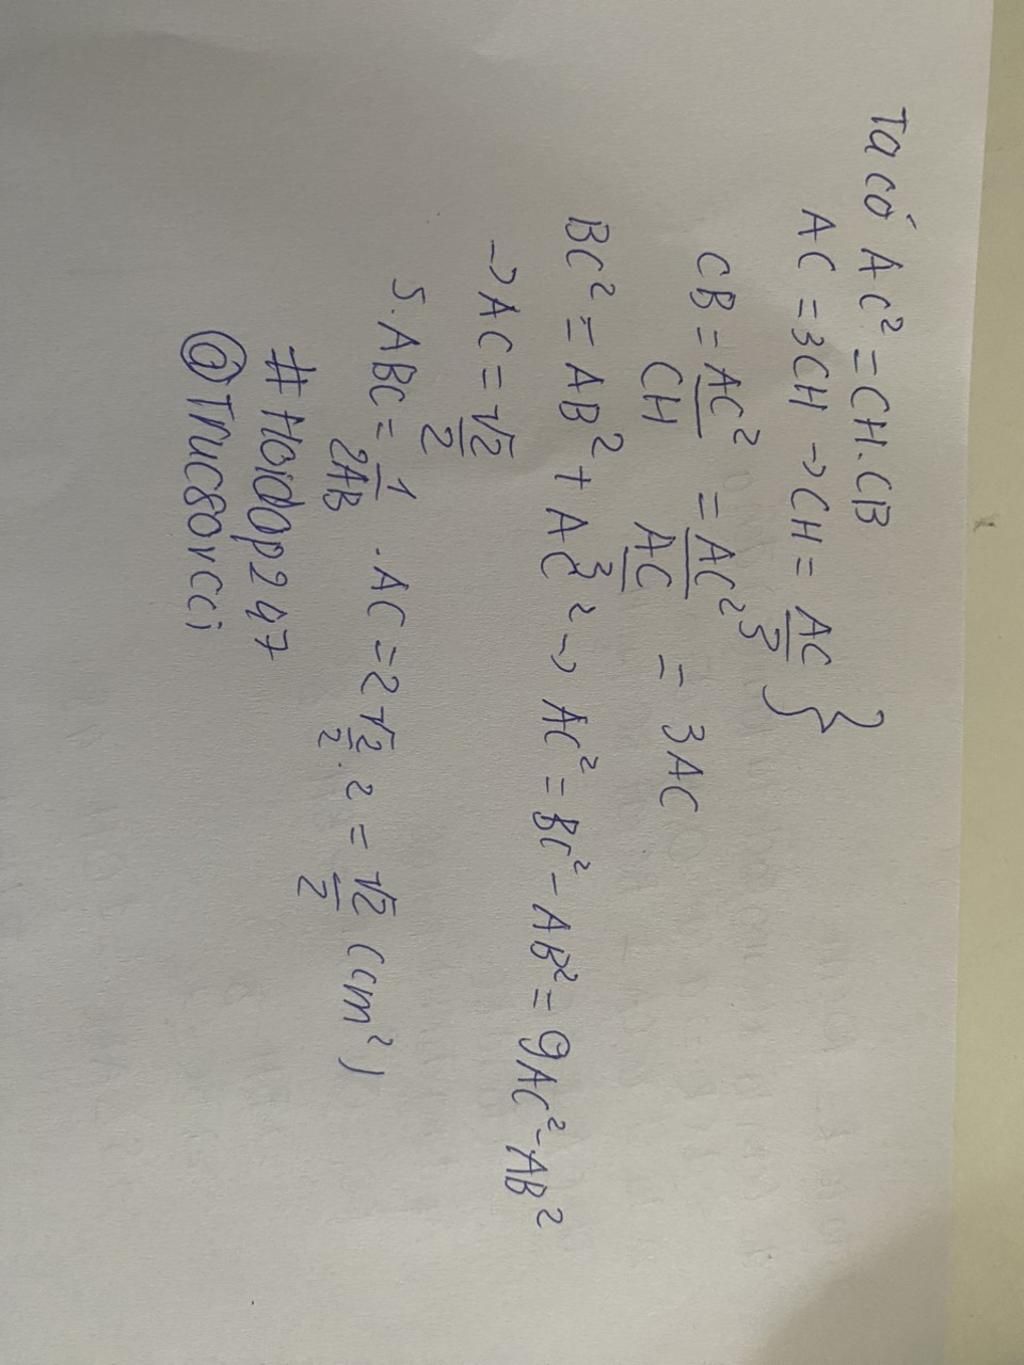 Ta có AC² = CH.CB
AC = 3CH → CH = AC/3 }
CB = AC²/CH = AC²/(AC/3) = 3AC
BC² = AB² + AC² → AC² = BC² - AB² = 9AC² - AB²
→ AC = √2/2
S.ABC = 1/2AB . AC = 2√2/2 . 2 = √2/2 (cm²)
#Hoidap247